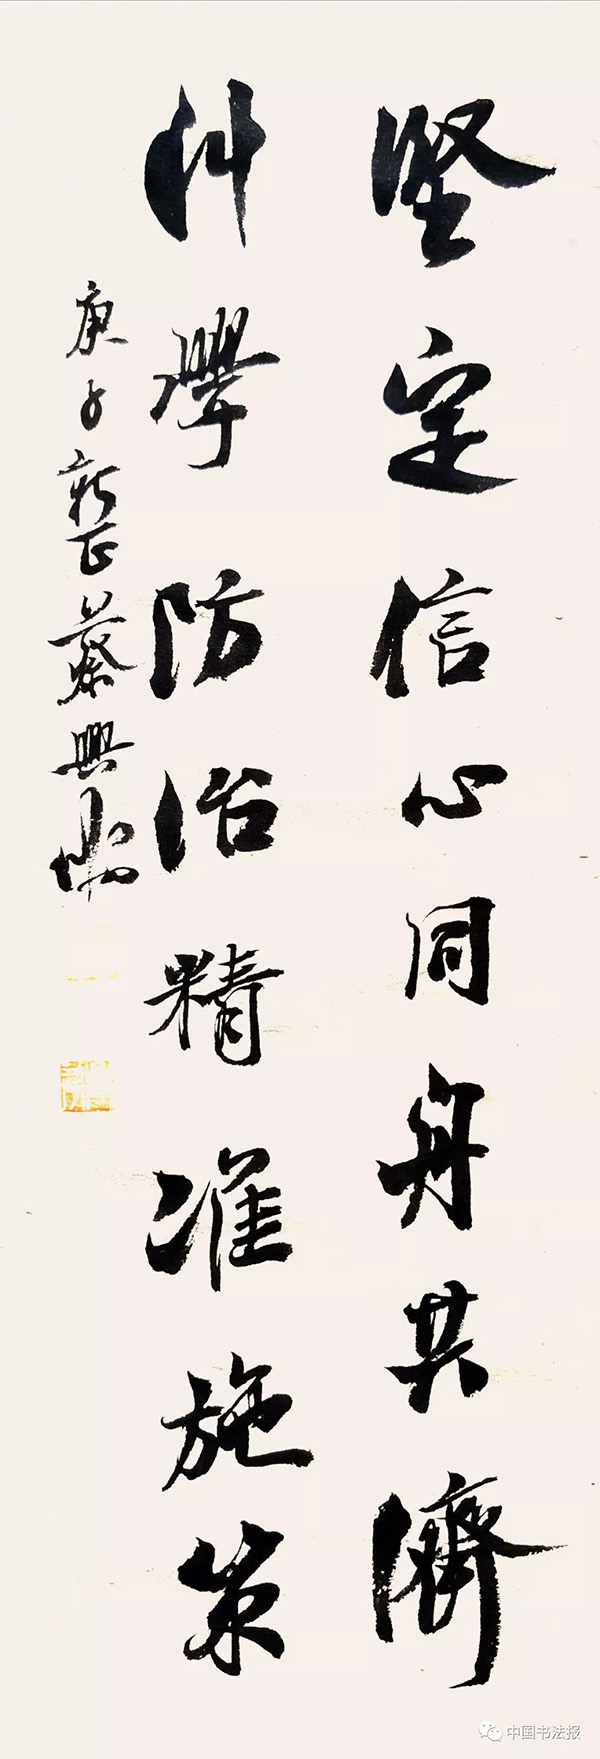 堅定信心同舟共濟
科學防治精准施策
庚子新正蔡興
中国书法报